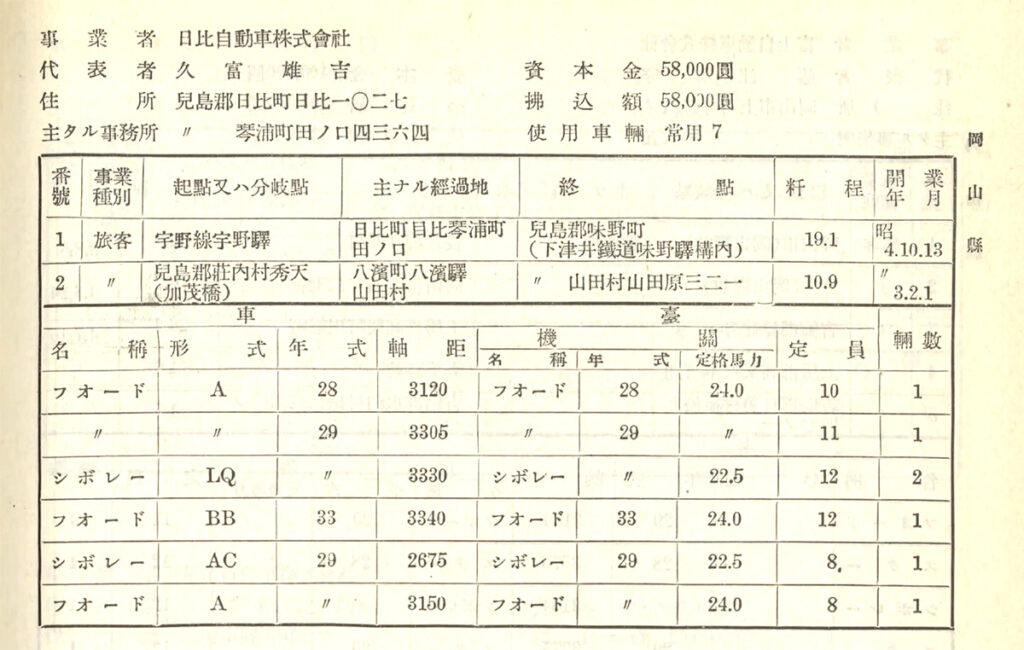 事業者 日比自動車株式會社
代表者 久富雄吉 資本金 58,000圓
住所 兒島郡日比町日比一〇二七 拂込額 58,000圓
主タル事務所 〃 琴浦町田ノ口四三六四 使用車輛 常用 7
岡山縣
番號 事業種別 起點又ハ分岐點 主ナル經過地 終點 粁程 開業年月
1 旅客 宇野線宇野驛 日比町目比琴浦町田ノ口 兒島郡味野町(下津井鐵道味野驛構內) 19.1 昭4.10.13
2 〃 兒島郡莊內村秀天(加茂橋) 八濱町八濱驛山田村 〃 山田村山田原三二一 10.9 〃3.2.1
車臺 輛數
名稱 形式 年式 軸距 機關 定員
名稱 年式 定格馬力
フオード A 28 3120 フオード 28 24.0 10 1
〃 〃 29 3305 〃 29 〃 11 1
シボレー LQ 〃 3330 シボレー 〃 22.5 12 2
フオード BB 33 3340 フオード 33 24.0 12 1
シボレー AC 29 2675 シボレー 29 22.5 8 1
フオード A 〃 3150 フオード 〃 24.0 8 1